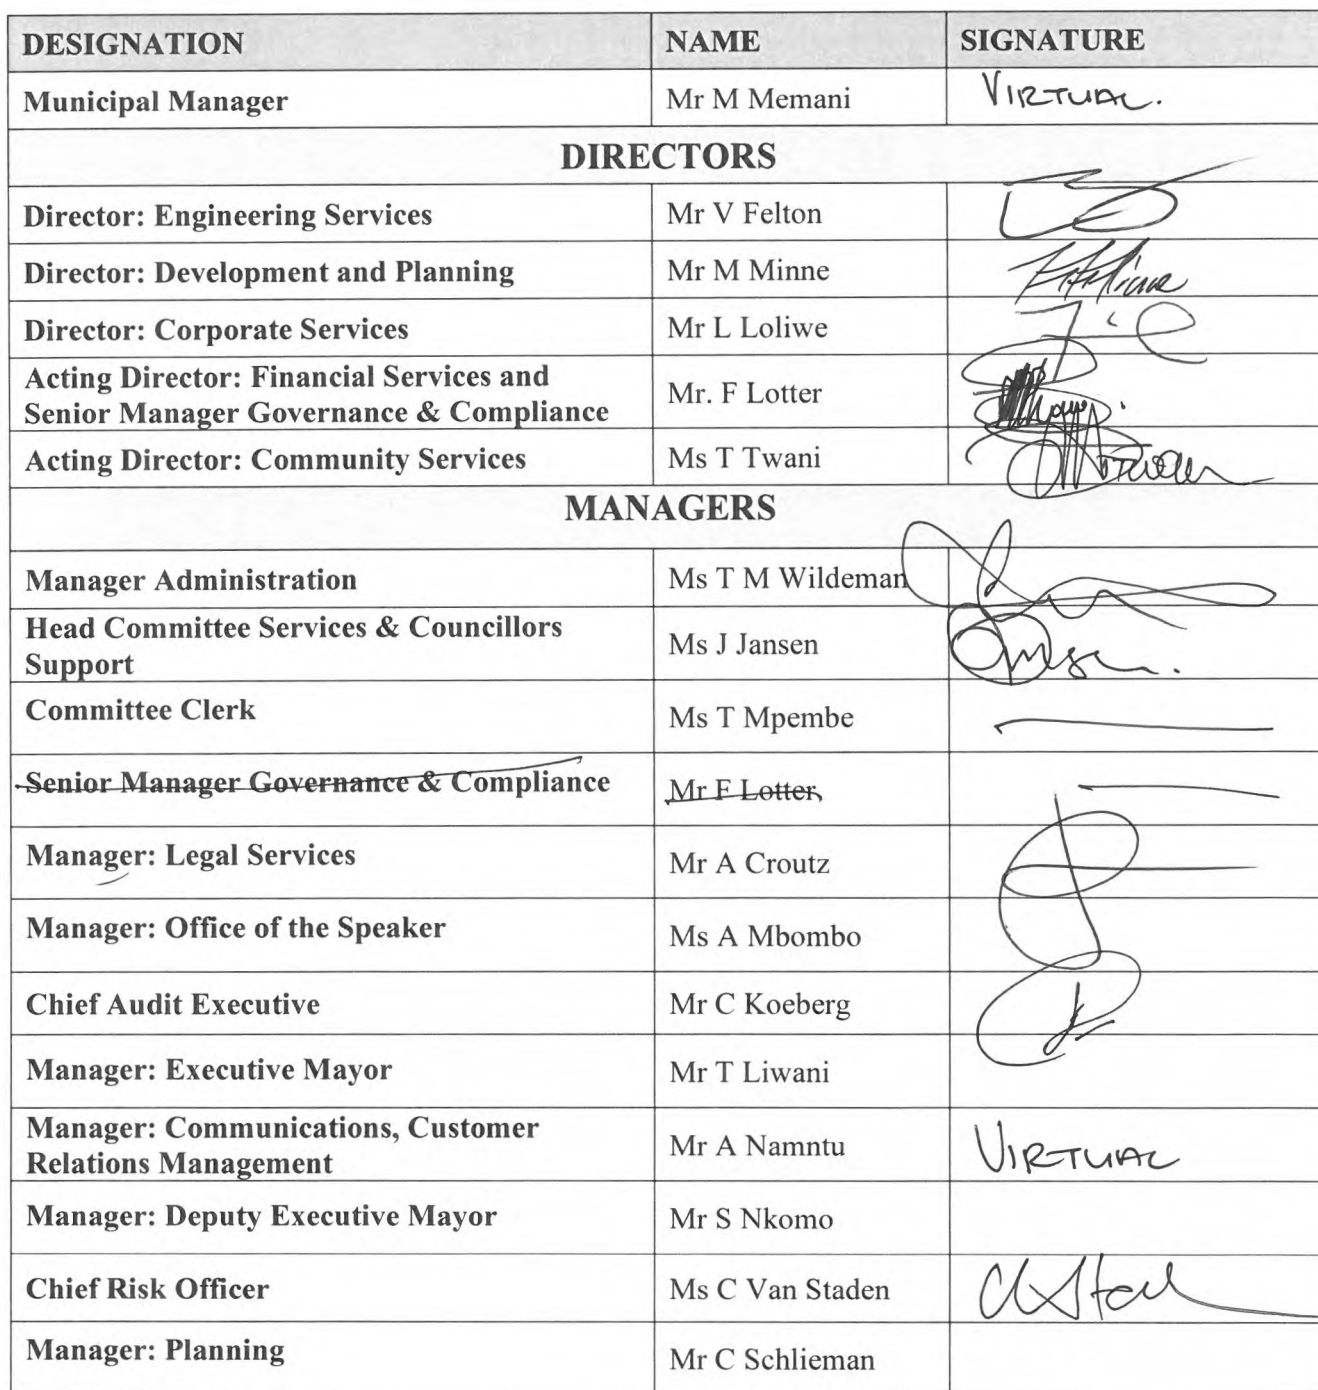 DESIGNATION NAME SIGNATURE
Municipal Manager Mr M Memani VIRTUAL.
DIRECTORS
Director: Engineering Services Mr V Felton
Director: Development and Planning Mr M Minne
Director: Corporate Services Mr L Loliwe
Acting Director: Financial Services and
Senior Manager Governance & Compliance Mr. F Lotter
Acting Director: Community Services Ms T Twani
MANAGERS
Manager Administration Ms T M Wildeman
Head Committee Services & Councillors
Support Ms J Jansen
Committee Clerk Ms T Mpembe
Senior Manager Governance & Compliance Mr F Lotter
Manager: Legal Services Mr A Croutz
Manager: Office of the Speaker Ms A Mbombo
Chief Audit Executive Mr C Koeberg
Manager: Executive Mayor Mr T Liwani
Manager: Communications, Customer
Relations Management Mr A Namntu VIRTUAL
Manager: Deputy Executive Mayor Mr S Nkomo
Chief Risk Officer Ms C Van Staden
Manager: Planning Mr C Schlieman